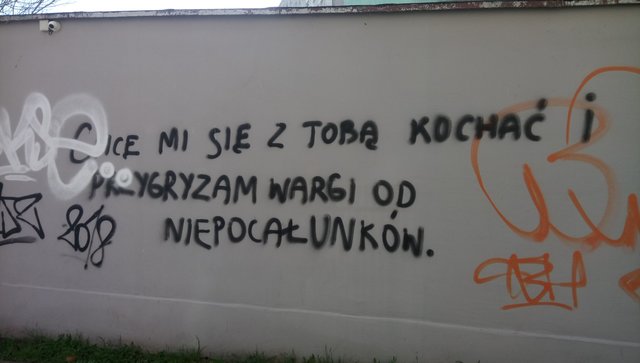 CHCE MI SIĘ Z TOBĄ KOCHAĆ i
PRZYGRYZAM WARGI OD
NIEPOCAŁUNKÓW.
2018